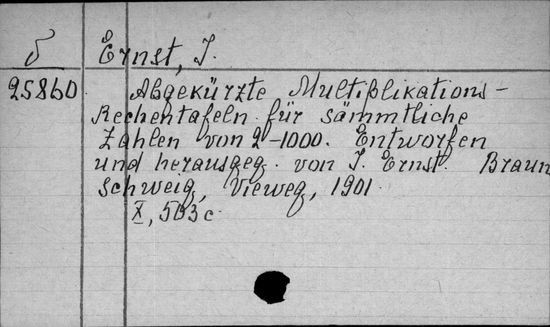 δ Ernst, J.
25860. Abgekürzte Multiplikations-
Rechentafeln für sämmtliche
Zahlen von 2-1000. Entworfen
und herausgeg. von J. Ernst. Braun
schweig, Vieweg, 1901.
X, 503 c.